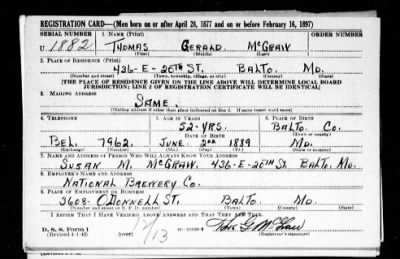 REGISTRATION CARD—(Men born on or after April 28, 1877 and on or before February 16, 1897)
SERIAL NUMBER 1. NAME (Print)
U 1882 THOMAS GERALD McGRAW
(First) (Middle) (Last)
2. PLACE OF RESIDENCE (Print)
436-E-26TH ST. BALTO. MD.
(Number and street) (Town, township, village, or city) (County) (State)
[THE PLACE OF RESIDENCE GIVEN ON THE LINE ABOVE WILL DETERMINE LOCAL BOARD
JURISDICTION; LINE 2 OF REGISTRATION CERTIFICATE WILL BE IDENTICAL]
3. MAILING ADDRESS
SAME.
[Mailing address if other than place indicated on line 2. If same insert word same]
4. TELEPHONE 5. AGE IN YEARS 6. PLACE OF BIRTH
52-YRS. BALTO. CO.
DATE OF BIRTH (Town or county)
BEL. 7962. JUNE 2ND 1889 MD.
(Exchange) (Number) (Mo.) (Day) (Yr.) (State or country)
7. NAME AND ADDRESS OF PERSON WHO WILL ALWAYS KNOW YOUR ADDRESS
SUSAN M. McGRAW. 436-E-26TH St. BALTO. MD.
8. EMPLOYER'S NAME AND ADDRESS
NATIONAL BREWERY CO.
9. PLACE OF EMPLOYMENT OR BUSINESS
3608- O'DONNELL ST. BALTO. MD.
(Number and street or R. F. D. number) (Town) (County) (State)
I AFFIRM THAT I HAVE VERIFIED ABOVE ANSWERS AND THAT THEY ARE TRUE.
D. S. S. Form 1
(Revised 4-1-42) (over) Thos G McGraw
(Registrant's signature)